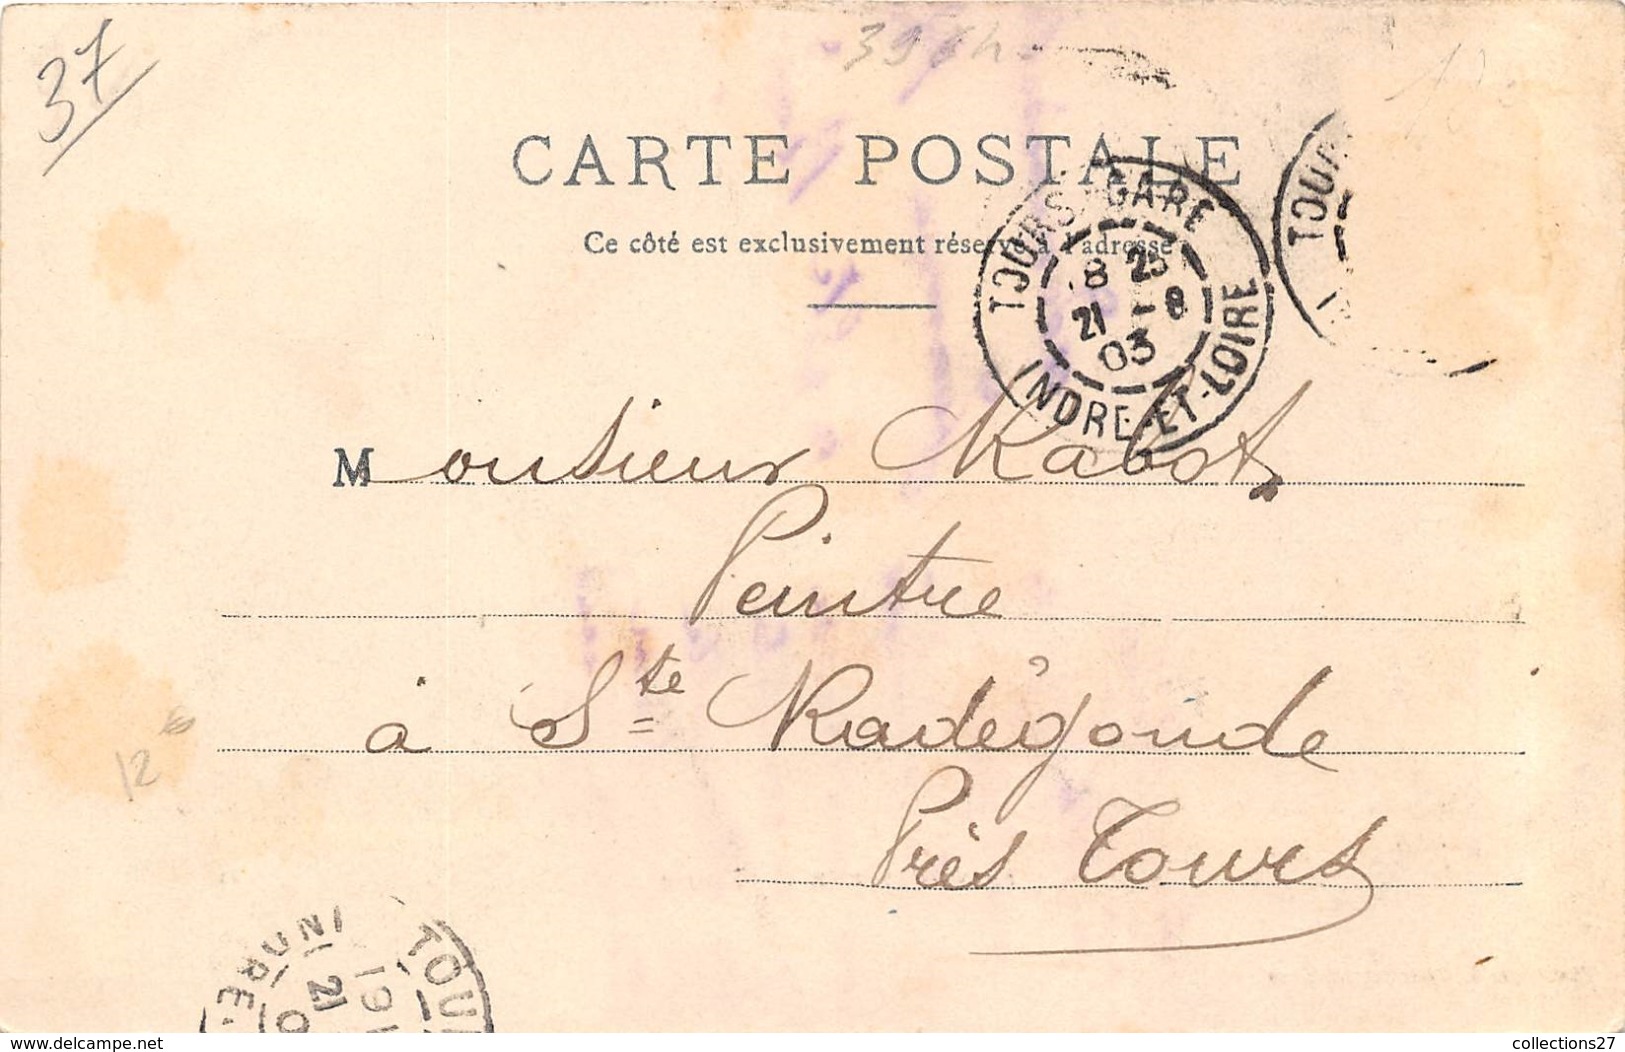 37
39
CARTE POSTALE
Ce côté est exclusivement réservé à l'adresse
TOURS-GARE
8 25
21 - 8
03
INDRE-ET-LOIRE
TOUR
Monsieur Rabot
Peintre
à Ste Radégonde
Près Tours
12
TOU
INDRE-
21
www.delcampe.net
collections27